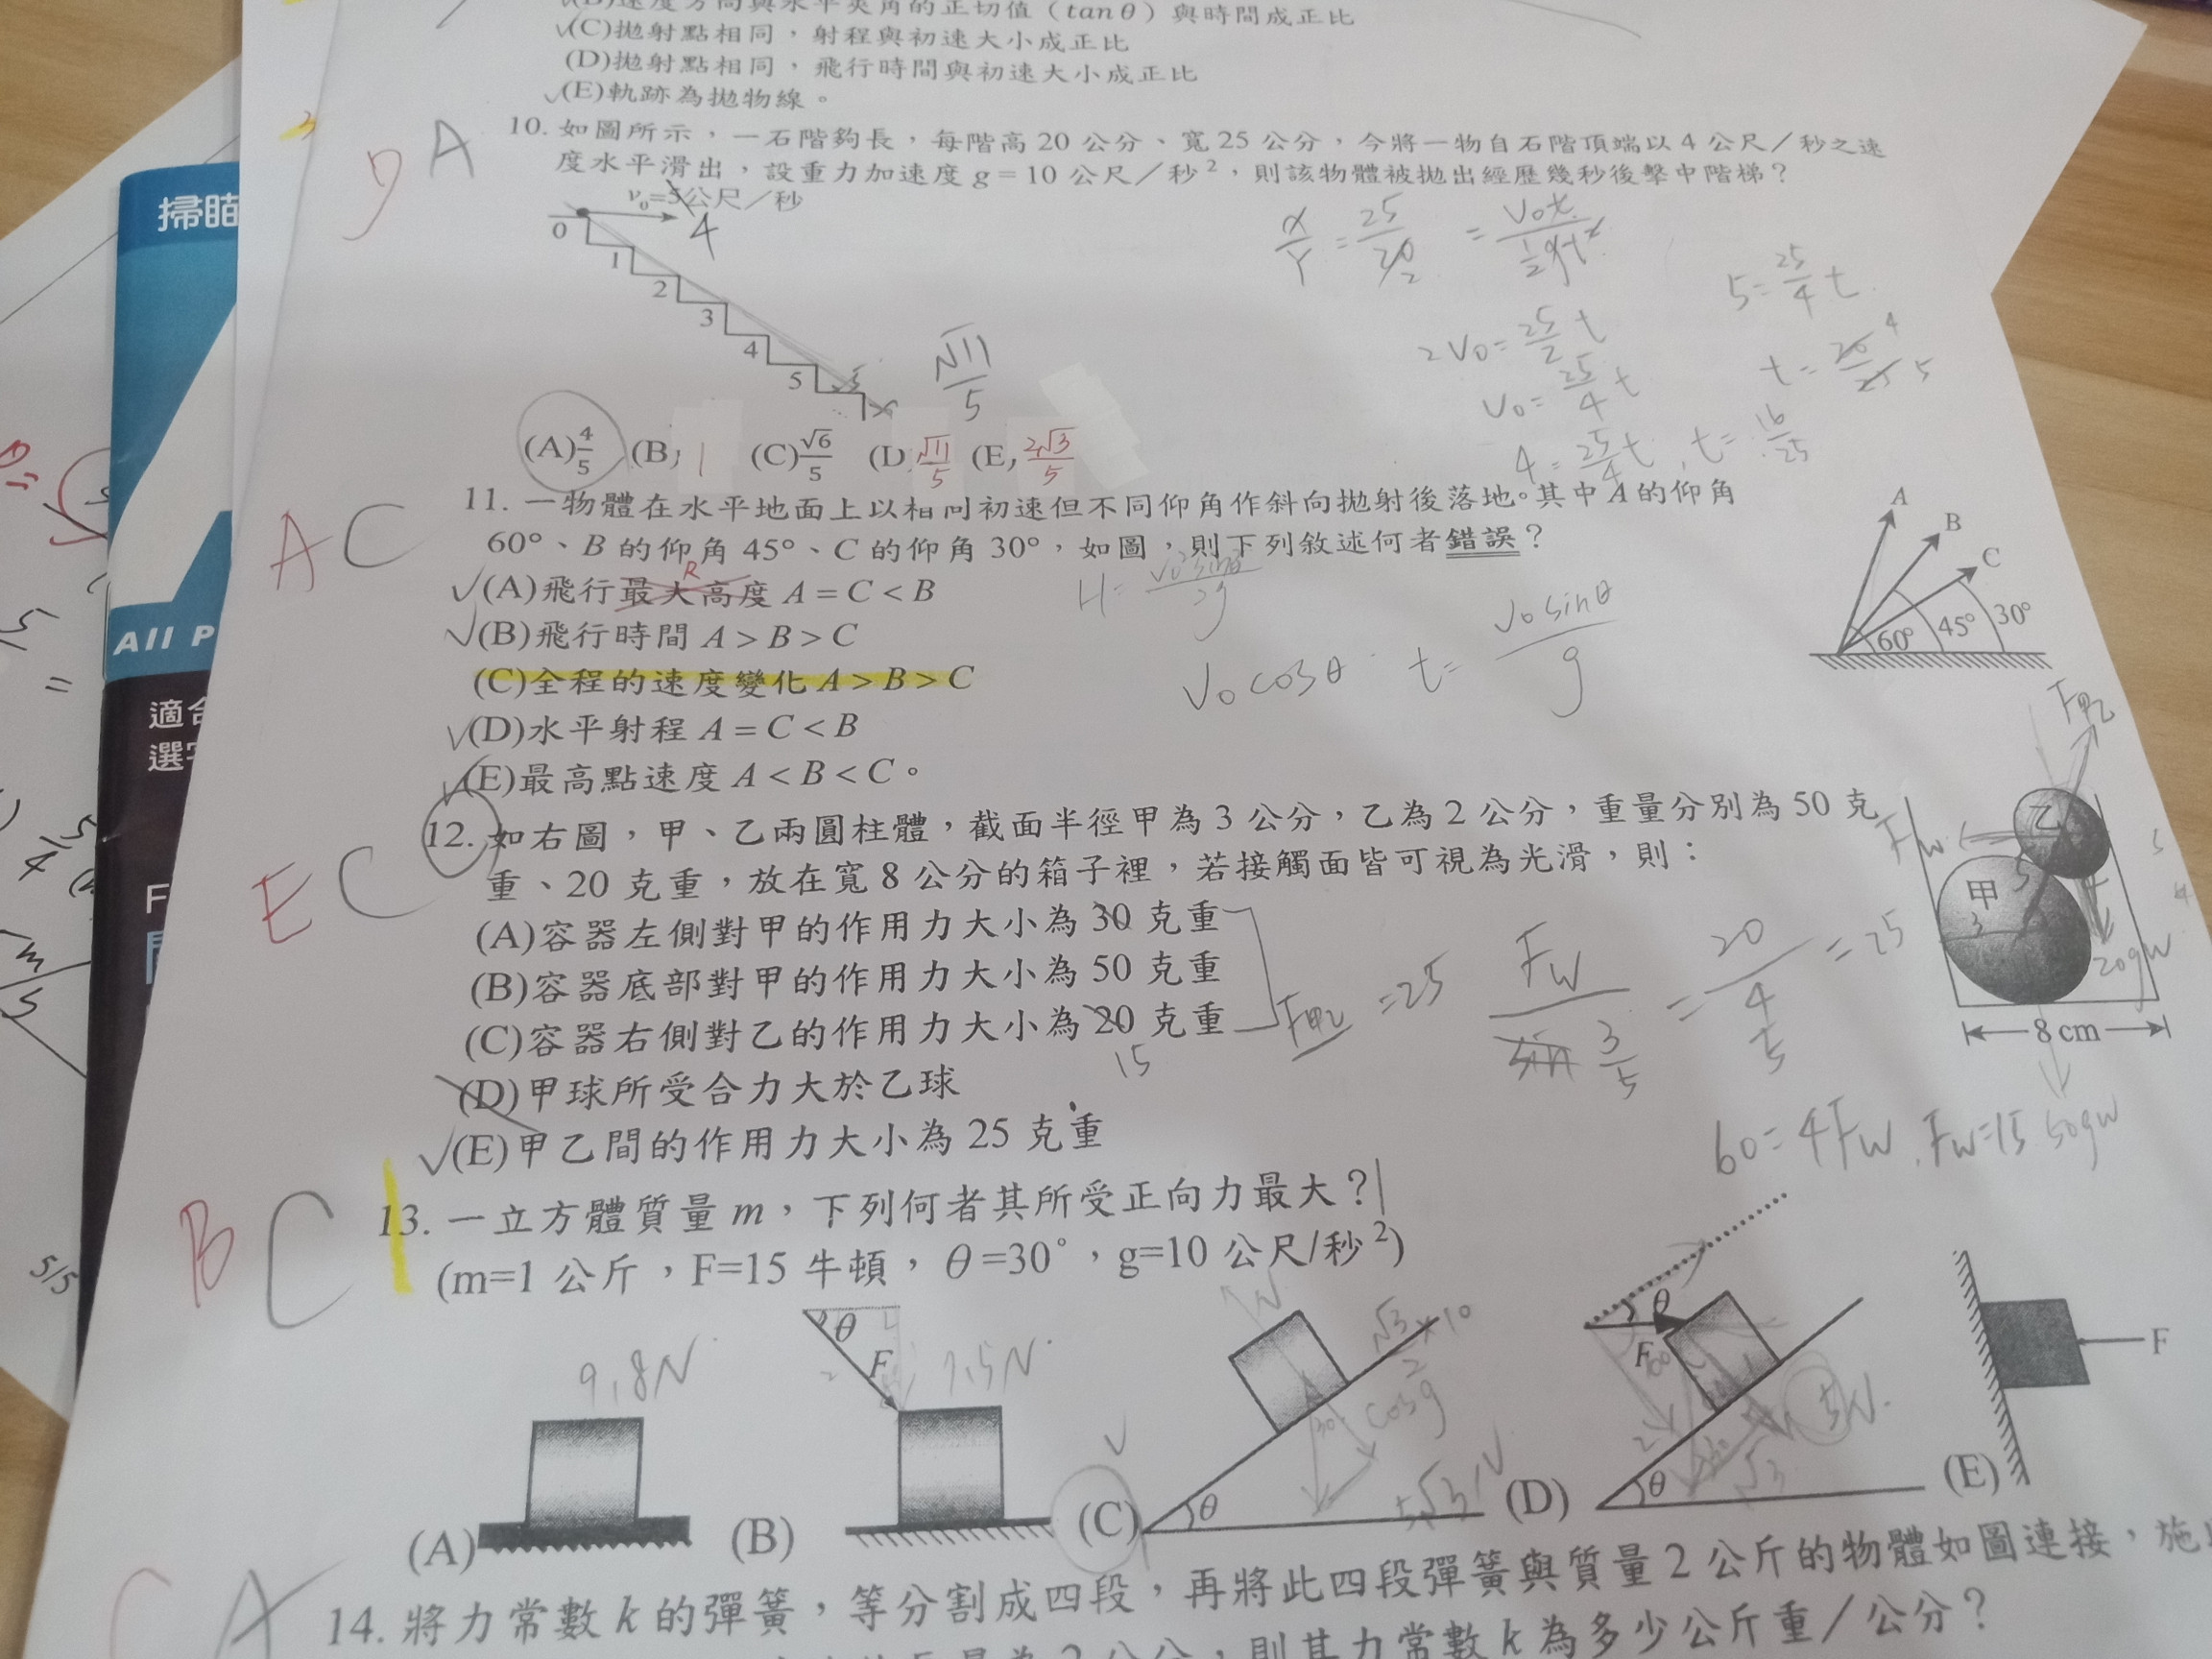 (B)速度方向與水平夾角的正切值（tanθ）與時間成正比
✓(C)拋射點相同，射程與初速大小成正比
(D)拋射點相同，飛行時間與初速大小成正比
✓(E)軌跡為拋物線。
D A
10. 如圖所示，一石階夠長，每階高 20 公分、寬 25 公分，今將一物自石階頂端以 4 公尺／秒之速
度水平滑出，設重力加速度 g = 10 公尺／秒²，則該物體被拋出經歷幾秒後擊中階梯？
v₀=5公尺／秒
4
0
1
2
3
4
5
x/y = 25/20 = V₀t / ½gt²
2
2V₀= 25/2 t
V₀= 25/4 t
4 = 25/4 t , t = 16/25
5 = 25/4 t
t = 20/25 4 5
√11/5
(A)4/5 (B) 1 (C)√6/5 (D √11/5 (E, 2√3/5
AC
11. 一物體在水平地面上以相同初速但不同仰角作斜向拋射後落地。其中 A 的仰角
60°、B 的仰角 45°、C 的仰角 30°，如圖，則下列敘述何者錯誤？
R
✓(A)飛行最大高度 A = C < B
✓(B)飛行時間 A > B > C
(C)全程的速度變化 A > B > C
✓(D)水平射程 A = C < B
✓(E)最高點速度 A < B < C。
H= V₀²sin²θ / 2g
V₀cosθ t= V₀sinθ / g
A
B
C
60° 45° 30°
E C
12. 如右圖，甲、乙兩圓柱體，截面半徑甲為 3 公分，乙為 2 公分，重量分別為 50 克
重、20 克重，放在寬 8 公分的箱子裡，若接觸面皆可視為光滑，則：
(A)容器左側對甲的作用力大小為 30 克重
(B)容器底部對甲的作用力大小為 50 克重
(C)容器右側對乙的作用力大小為 20 克重
15
(D)甲球所受合力大於乙球
✓(E)甲乙間的作用力大小為 25 克重
F甲乙 =25
Fw / 3/5 = 20 / 4/5 = 25
60=4Fw , Fw=15
F甲乙
Fw
乙
5
甲
3
20gw
8 cm
50gw
B C
13. 一立方體質量 m，下列何者其所受正向力最大？
(m=1 公斤，F=15 牛頓，θ=30°，g=10 公尺/秒²)
9.8N
θ
F
7.5N
N
√3/2 ×10
30°
cosg
θ
5√3N
θ
F
θ
5N
√3
F
(A) (B) (C) (D) (E)
C A
14. 將力常數 k 的彈簧，等分割成四段，再將此四段彈簧與質量 2 公斤的物體如圖連接，施
則其力常數 k 為多少公斤重／公分？
掃瞄
All P
適合
選
5/5